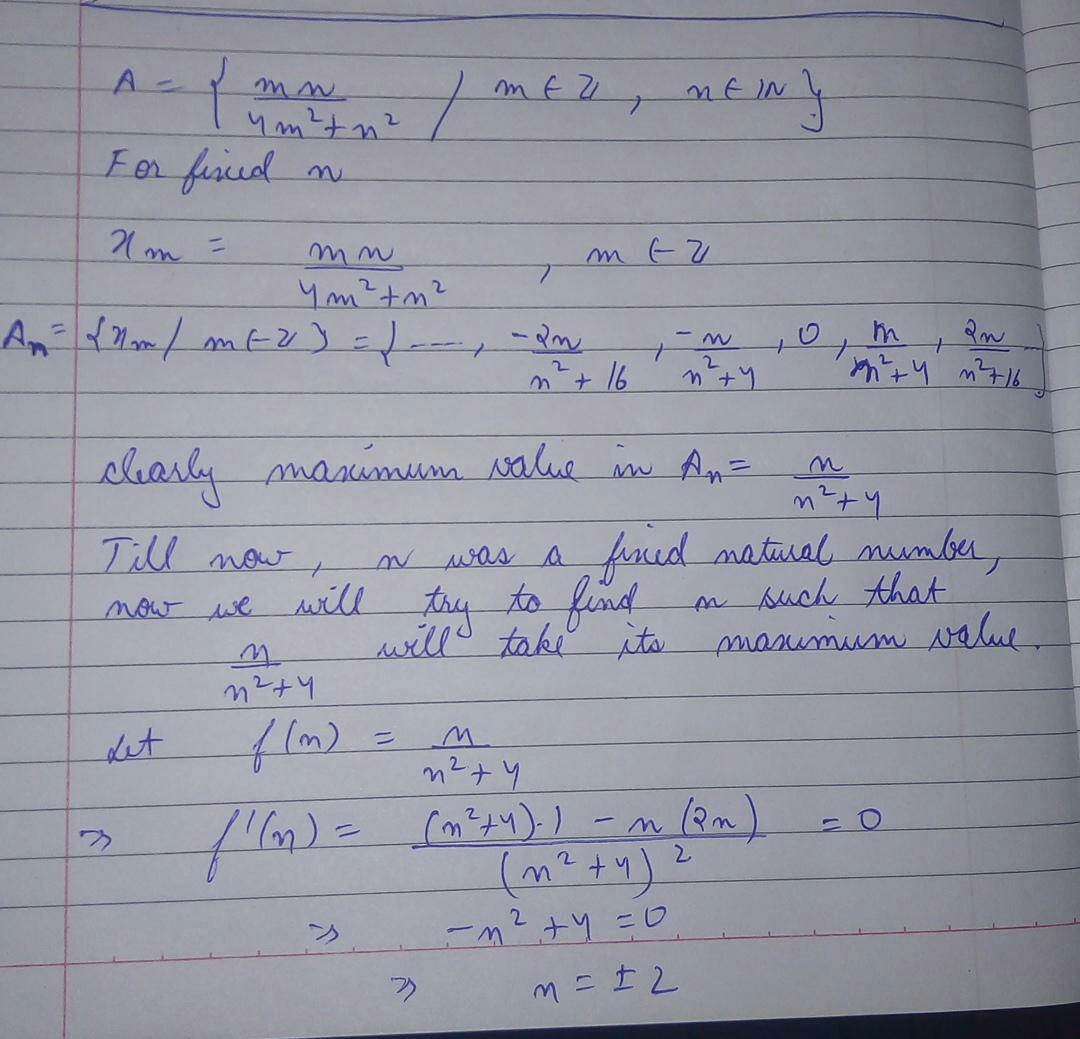 A = { mn / (4m² + n²) / m ∈ ℤ, n ∈ ℕ }
For fixed n
x_m = mn / (4m² + n²) , m ∈ ℤ
A_n = {x_m / m ∈ ℤ} = { ---, -2n / (n² + 16) , -n / (n² + 4) , 0, n / (n² + 4) , 2n / (n² + 16) }
clearly maximum value in A_n = n / (n² + 4)
Till now, n was a fixed natural number,
now we will try to find n such that
n / (n² + 4) will take its maximum value.
Let f(n) = n / (n² + 4)
⇒ f'(n) = ((n² + 4)·1 - n(2n)) / (n² + 4)² = 0
⇒ -n² + 4 = 0
⇒ n = ± 2